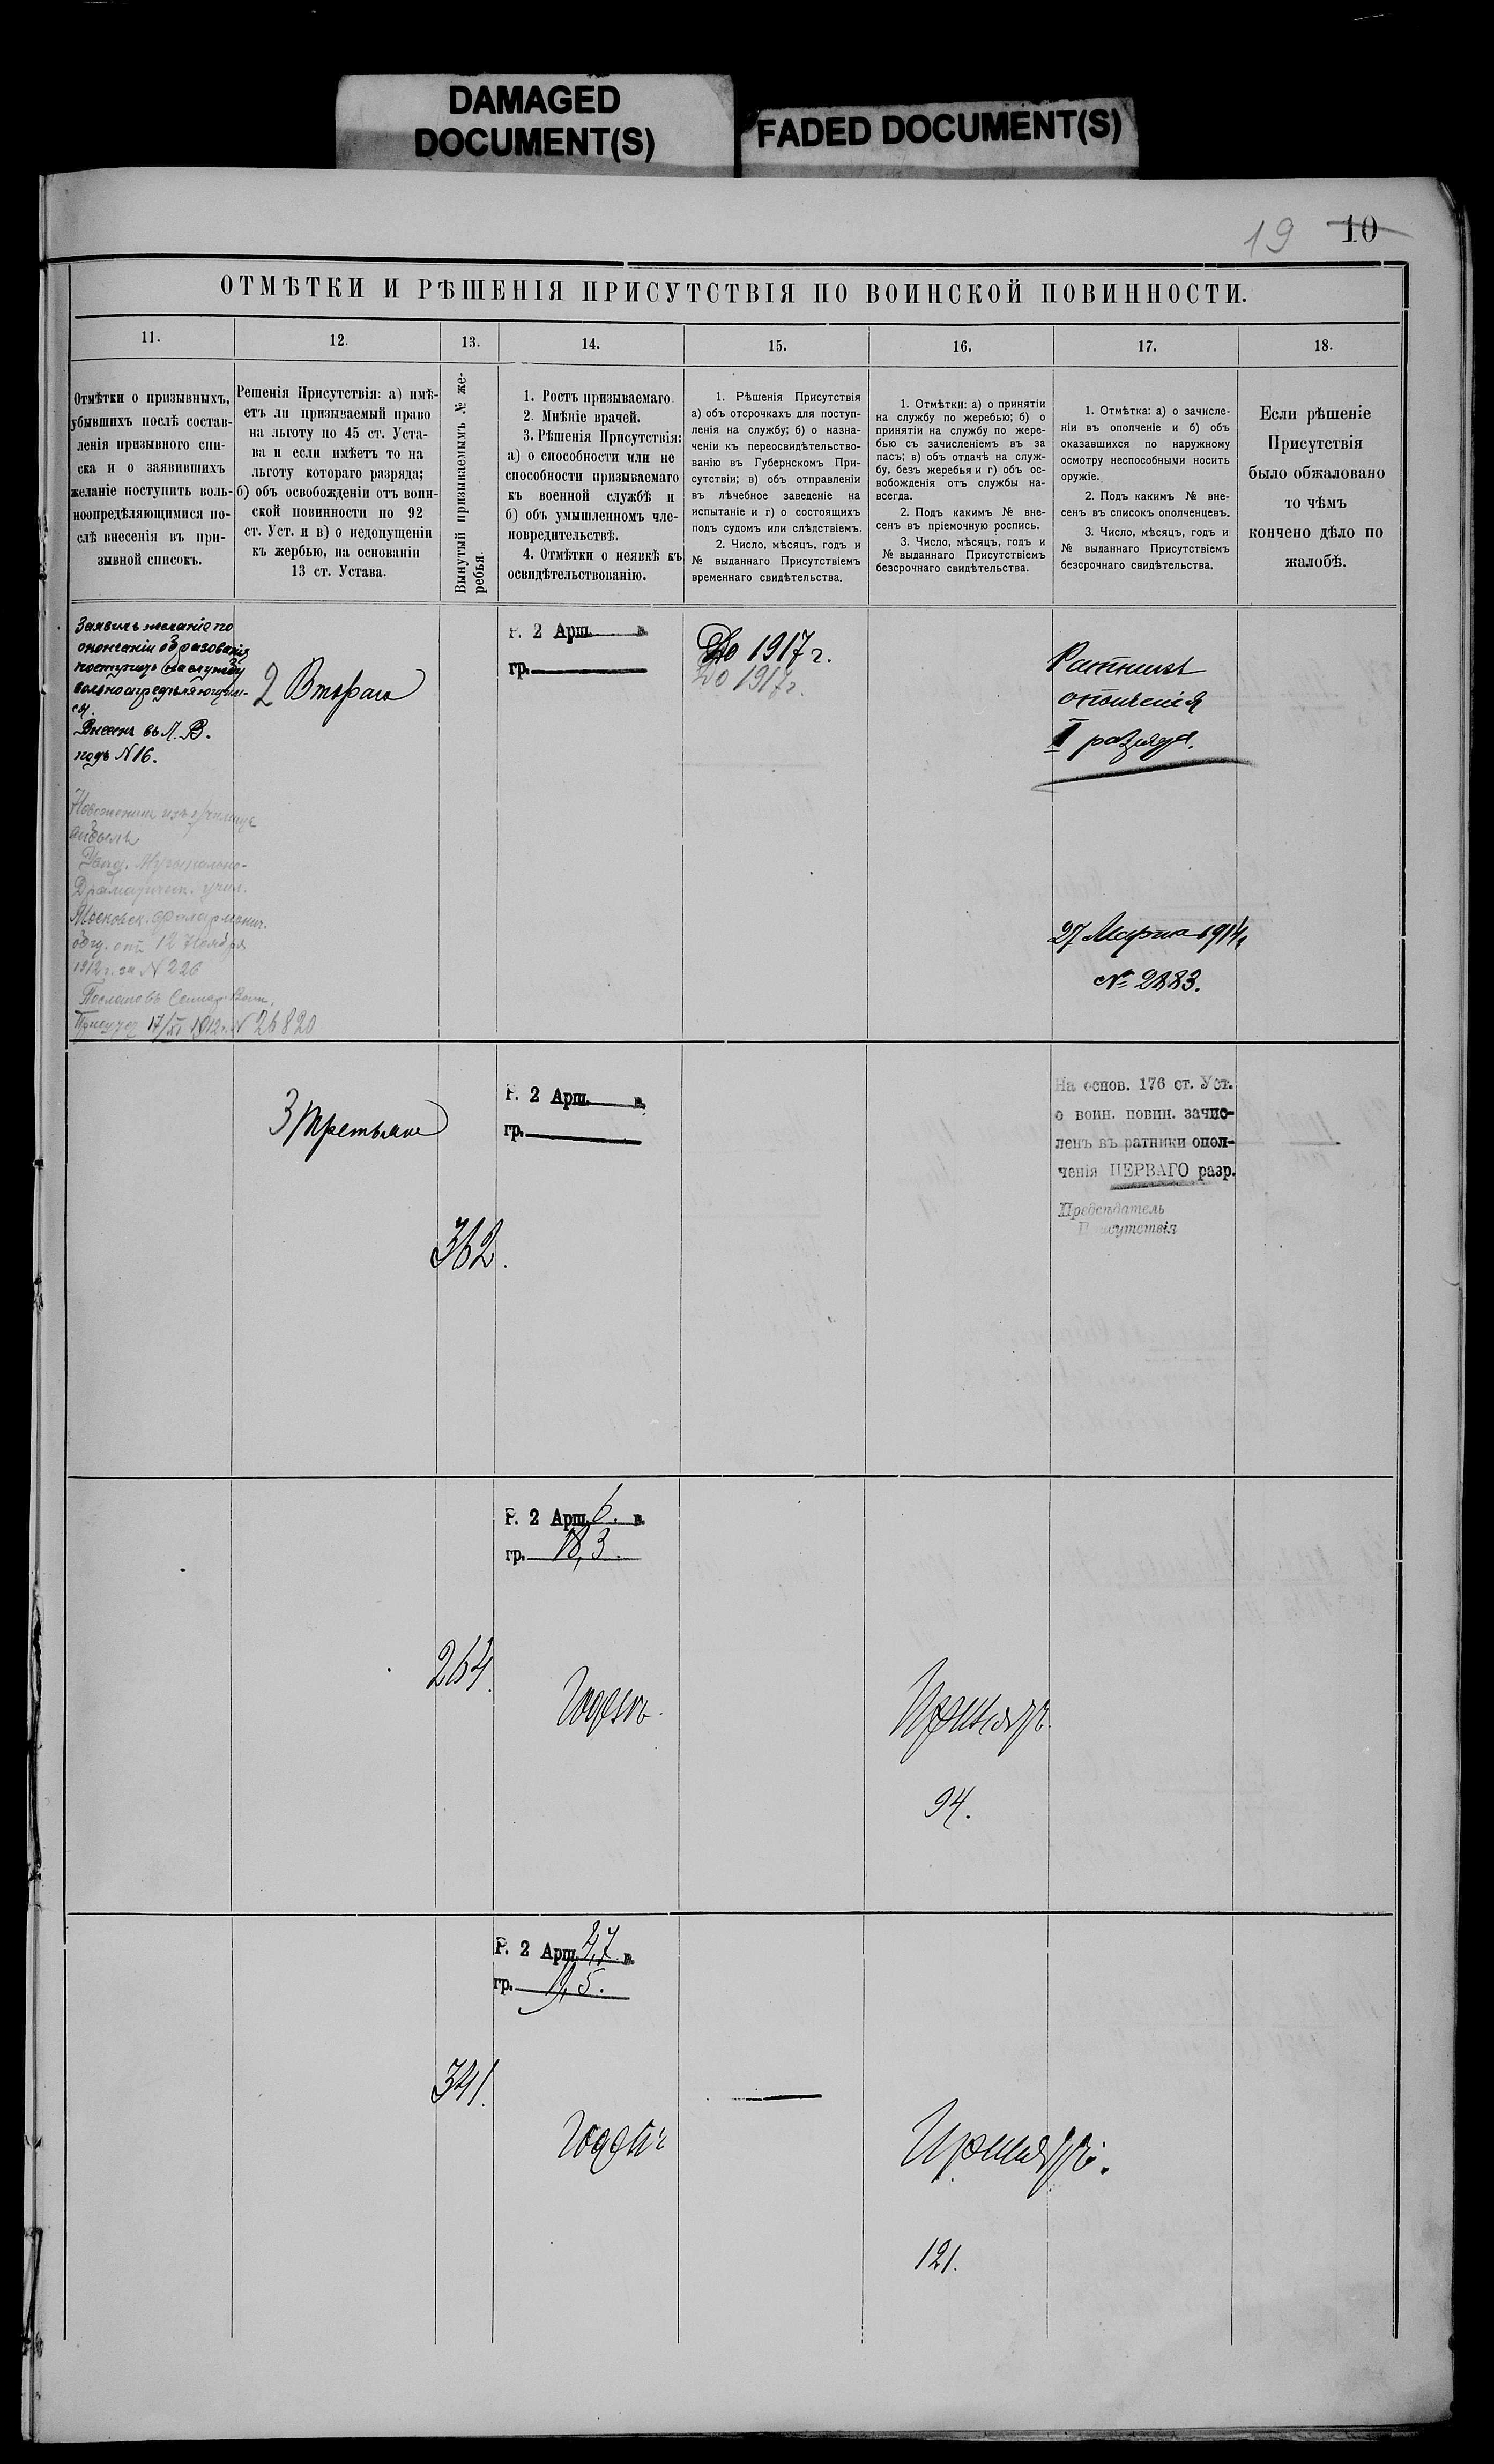 DAMAGED
DOCUMENT(S)
FADED DOCUMENT(S)
19 10
ОТМѢТКИ И РѢШЕНІЯ ПРИСУТСТВІЯ ПО ВОИНСКОЙ ПОВИННОСТИ.
11. 12. 13. 14. 15. 16. 17. 18.
Отмѣтки о призывныхъ,
убывшихъ послѣ состав-
ленія призывного спи-
ска и о заявившихъ
желаніе поступить воль-
ноопредѣляющимися по-
слѣ внесенія въ при-
зывной списокъ.
Решенія Присутствія: а) имѣ-
етъ ли призываемый право
на льготу по 45 ст. Уста-
ва и если имѣетъ то на
льготу котораго разряда;
б) объ освобожденіи отъ воин-
ской повинности по 92
ст. Уст. и в) о недопущеніи
къ жербью, на основаніи
13 ст. Устава.
Вынутый призываемымъ № же-
ребья.
1. Ростъ призываемаго.
2. Мнѣніе врачей.
3. Рѣшенія Присутствія:
а) о способности или не
способности призываемаго
къ военной службѣ и
б) объ умышленномъ чле-
новредительствѣ.
4. Отмѣтки о неявкѣ къ
освидѣтельствованію.
1. Рѣшенія Присутствія
а) объ отсрочкахъ для поступ-
ленія на службу; б) о назна-
ченіи къ переосвидѣтельство-
ванію въ Губернскомъ При-
сутствіи; в) объ отправленіи
въ лѣчебное заведеніе на
испытаніе и г) о состоящихъ
подъ судомъ или слѣдствіемъ.
2. Число, мѣсяцъ, годъ и
№ выданнаго Присутствіемъ
временнаго свидѣтельства.
1. Отмѣтки: а) о принятіи
на службу по жеребью; б) о
принятіи на службу по жере-
бью съ зачисленіемъ въ за
пасъ; в) объ отдачѣ на служ-
бу, безъ жеребья и г) объ ос-
вобожденія отъ службы на-
всегда.
2. Подъ какимъ № вне-
сенъ въ пріемочную роспись.
3. Число, мѣсяцъ, годъ и
№ выданнаго Присутствіемъ
безсрочнаго свидѣтельства.
1. Отмѣтка: а) о зачисле-
ніи въ ополченіе и б) объ
оказавшихся по наружному
осмотру неспособными носить
оружіе.
2. Подъ какимъ № вне-
сенъ въ списокъ ополченцевъ.
3. Число, мѣсяцъ, годъ и
№ выданнаго Присутствіемъ
безсрочнаго свидѣтельства.
Если рѣшеніе
Присутствія
было обжаловано
то чѣмъ
кончено дѣло по
жалобѣ.
Заявилъ желаніе по
окончаніи образованія
поступить на службу
вольноопредѣляющим-
ся.
Внесенъ въ Л. В.
подъ № 16.
Драматическ. учил.
Московск. Филармонич.
общ. отъ 12 Ноября
1912 г. за № 226
17/XI 1912 г. № 26820
2 Втораго
Р. 2 Арш. в.
гр.
До 1917 г.
До 1917 г.
Ратникъ
ополченія
I разряда.
27 Марта 1914 г.
№ 2883.
3 Третьяго
362.
Р. 2 Арш. в.
гр.
На основ. 176 ст. Уст.
о воин. повин. зачис-
ленъ въ ратники опол-
ченія ПЕРВАГО разр.
Предсѣдатель
Присутствія
Р. 2 Арш. 6. в.
гр. 18,3.
264.
Годенъ.
Принятъ.
94.
Р. 2 Арш. 4,7 в.
гр. 19,5.
341.
Годенъ
Принятъ.
121.